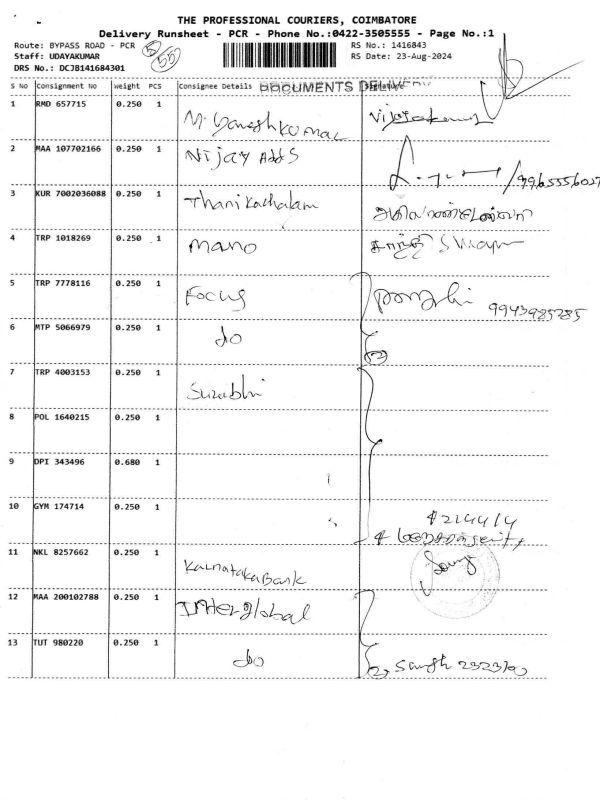 THE PROFESSIONAL COURIERS, COIMBATORE
Delivery Runsheet - PCR - Phone No.:0422-3505555 - Page No.:1
Route: BYPASS ROAD - PCR
RS No.: 1416843
Staff: UDAYAKUMAR
RS Date: 23-Aug-2024
DRS No.: DCJB141684301
S No Consignment No Weight PCS Consignee Details DOCUMENTS DELIVERY
1 RMD 657715 0.250 1
2 MAA 107702166 0.250 1 Nijay Adds 9965556027
3 KUR 7002036088 0.250 1 Thanikachalam
4 TRP 1018269 0.250 1 Mano
5 TRP 7778116 0.250 1 Focus 9943985285
6 MTP 5066979 0.250 1 do
7 TRP 4003153 0.250 1 Surabhi
8 POL 1640215 0.250 1
9 DPI 343496 0.680 1
10 GYM 174714 0.250 1
11 NKL 8257662 0.250 1 Karnataka Bank
12 MAA 200102788 0.250 1 Interglobal
13 TUT 980220 0.250 1 do